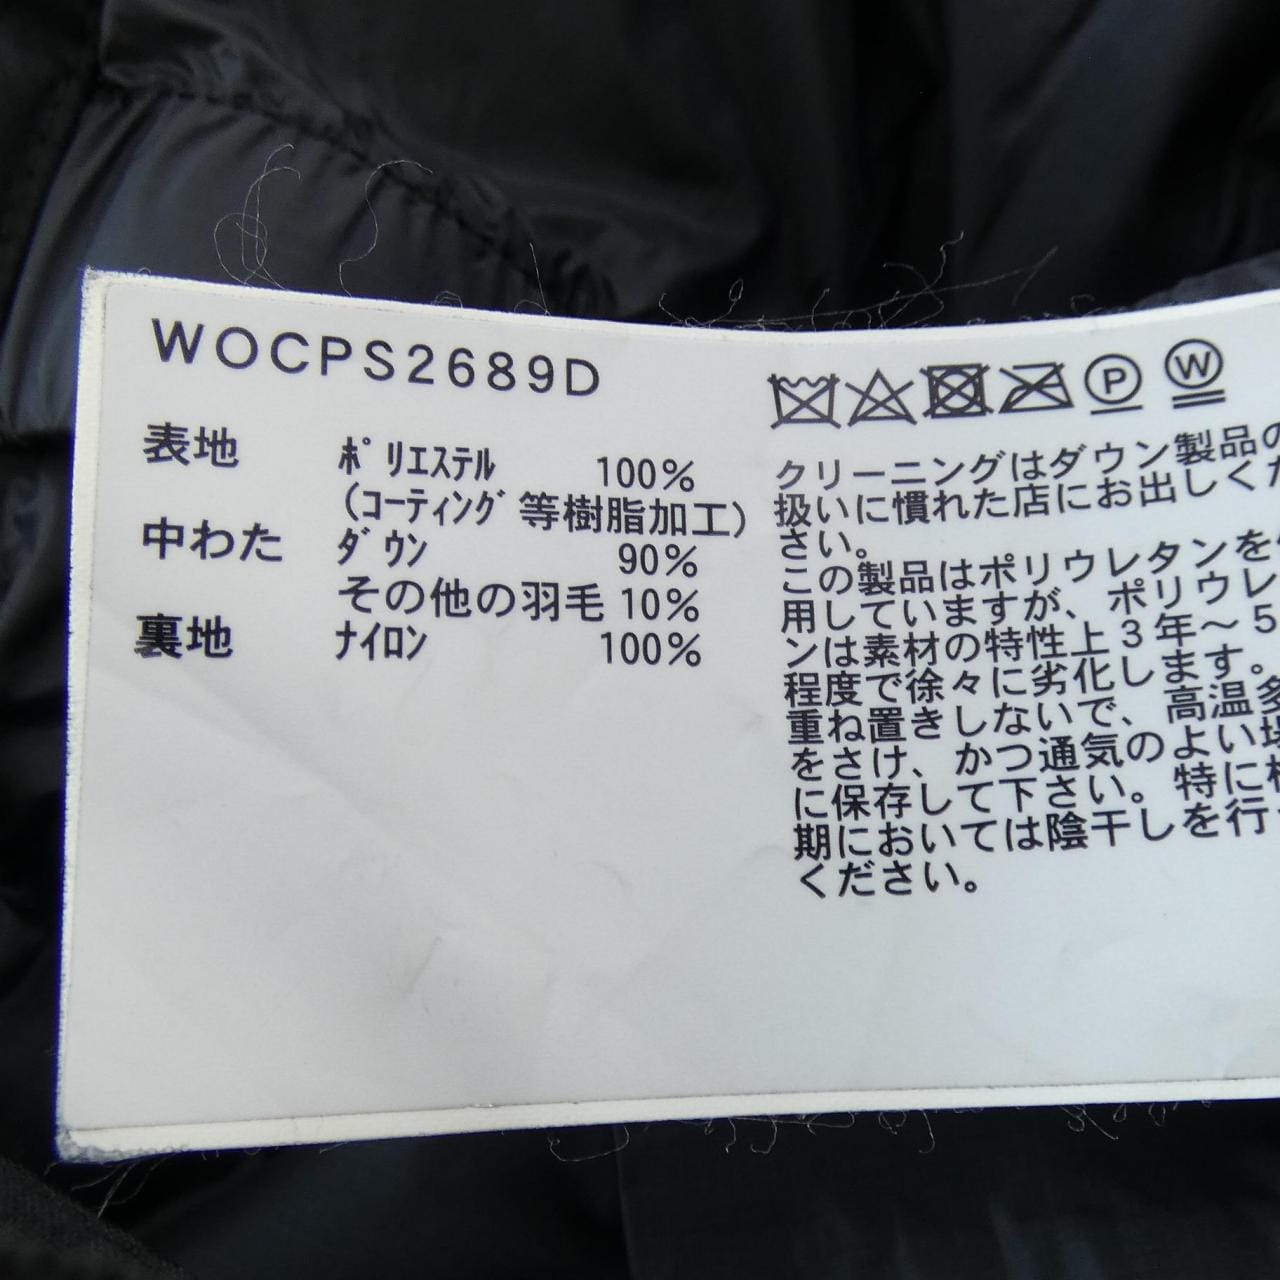 WOCPS2689D
表地 ﾎﾟﾘｴｽﾃﾙ 100%
(ｺｰﾃｨﾝｸﾞ等樹脂加工)
中わた ﾀﾞｳﾝ 90%
その他の羽毛 10%
裏地 ﾅｲﾛﾝ 100%
P W
クリーニングはダウン製品の
扱いに慣れた店にお出しくだ
さい。
この製品はポリウレタンを使
用していますが、ポリウレ
ンは素材の特性上3年～5
程度で徐々に劣化します。
重ね置きしないで、高温多
をさけ、かつ通気のよい場
に保存して下さい。特に
期においては陰干しを行っ
ください。